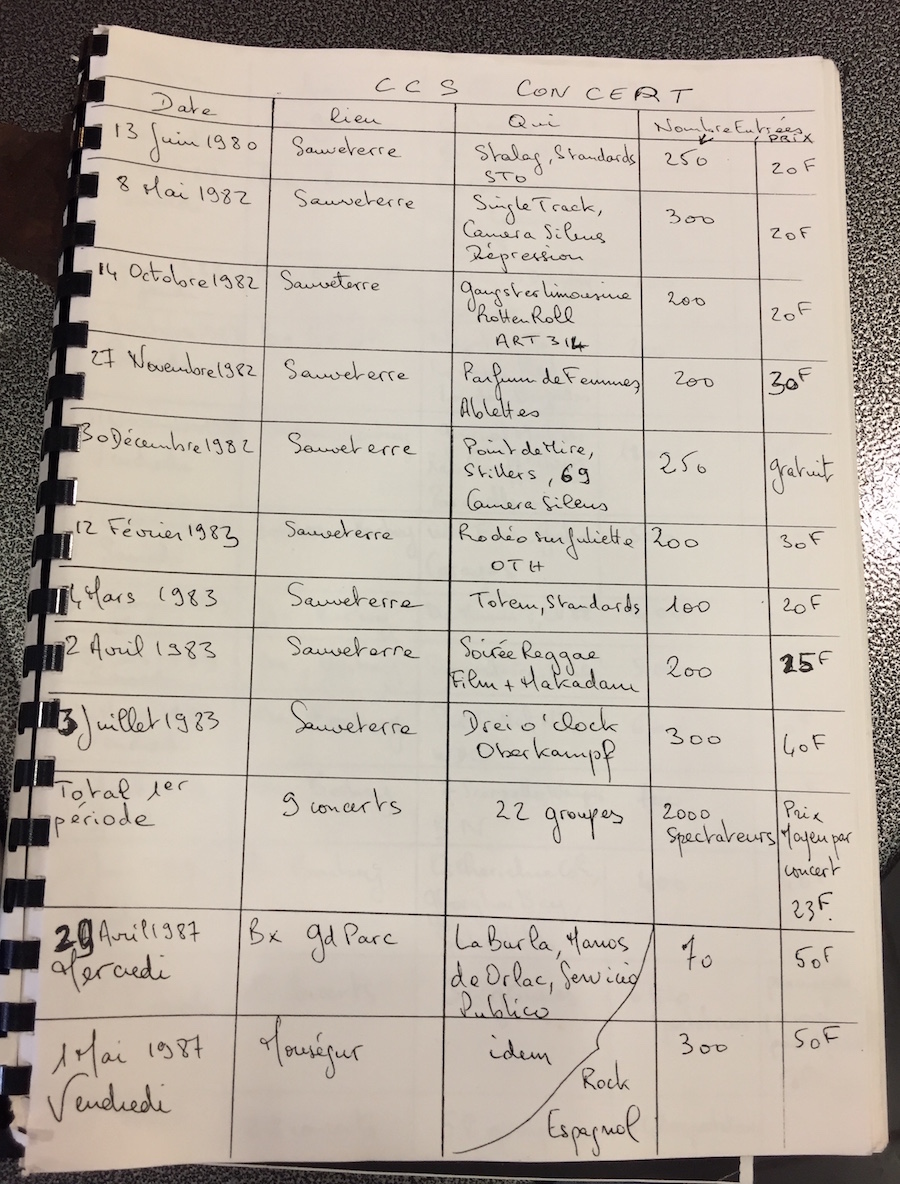 CCS CONCERT
Date Lieu Qui Nombre Entrées PRIX
13 Juin 1980 Sauveterre Stalag, Standards 250 20F
STO
8 Mai 1982 Sauveterre Single Track, 300 20F
Camera Silens
Dépression
14 Octobre 1982 Sauveterre Gangster limousine 200 20F
Rotten Roll
ART 314
27 Novembre 1982 Sauveterre Parfum de Femmes, 200 30F
Ablettes
30 Décembre 1982 Sauveterre Point de Mire, 250 gratuit
Stillers, 69
Camera Silens
12 Février 1983 Sauveterre Rodéo sur Juliette 200 30F
OTH
4 Mars 1983 Sauveterre Totem, Standards 100 20F
2 Avril 1983 Sauveterre Soirée Reggae 200 25F
Film + Makadam
3 Juillet 1983 Sauveterre Drei o'clock 300 40F
Oberkampf
Total 1er 9 concerts 22 groupes 2000 Prix
période Spectateurs Moyen par
concert
23F.
29 Avril 1987 Bx gd Parc La Burla, Manos 70 50F
Mercredi de Orlac, Servicio
Publico
1 Mai 1987 Monségur idem 300 50F
Vendredi Rock
Espagnol